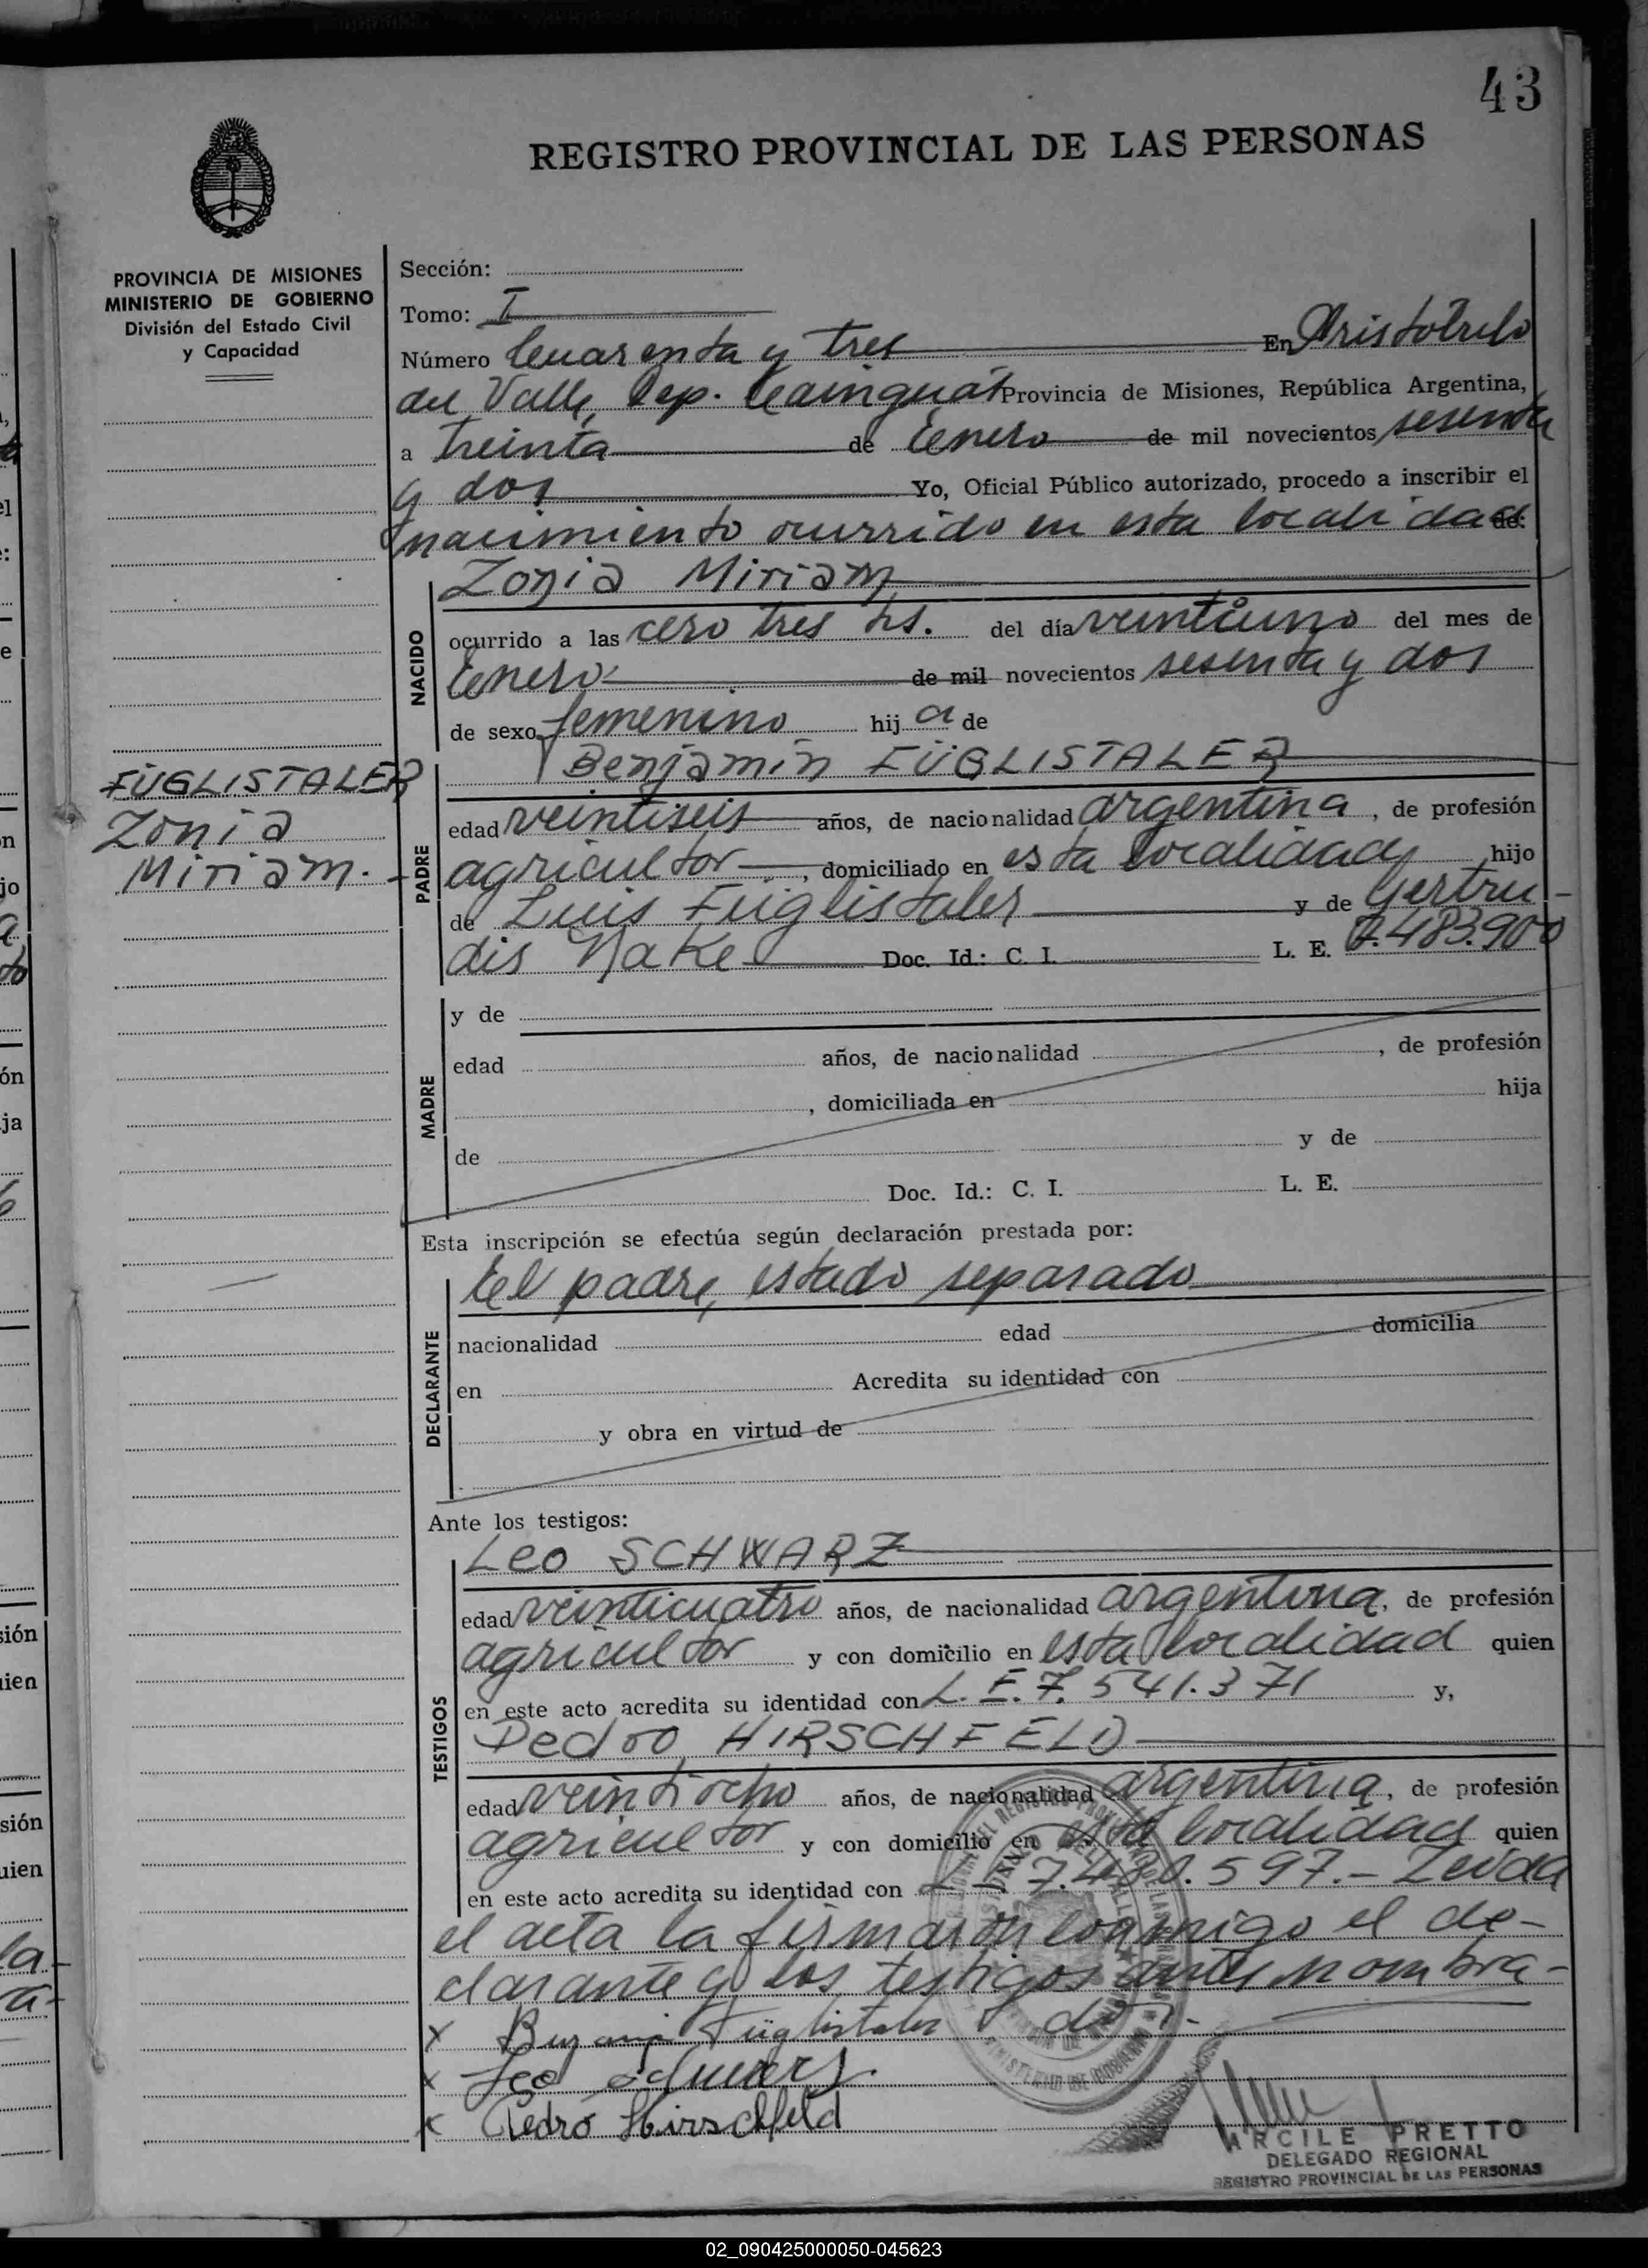 43
REGISTRO PROVINCIAL DE LAS PERSONAS
PROVINCIA DE MISIONES
MINISTERIO DE GOBIERNO
División del Estado Civil
y Capacidad
Sección:
Tomo: I
Número Cuarenta y tres En Aristóbulo
del Valle, Dep. Cainguás Provincia de Misiones, República Argentina,
a treinta de Enero de mil novecientos sesenta
y dos Yo, Oficial Público autorizado, procedo a inscribir el
nacimiento ocurrido en esta localidad de:
NACIDO
Zonia Miriam
ocurrido a las cero tres hs. del día veintiuno del mes de
Enero de mil novecientos sesenta y dos
de sexo femenino hij a de
FÜGLISTALER
Zonia
Miriam.-
PADRE
Benjamín FÜGLISTALER
edad veintiseis años, de nacionalidad argentina, de profesión
agricultor, domiciliado en esta localidad hijo
de Luis Füglistaler y de Gertru-
dis Nake Doc. Id.: C. I. L. E. 7.483.900
MADRE
y de
edad años, de nacionalidad , de profesión
, domiciliada en hija
de y de
Doc. Id.: C. I. L. E.
Esta inscripción se efectúa según declaración prestada por:
DECLARANTE
El padre, estado separado
nacionalidad edad domicilia
en Acredita su identidad con
y obra en virtud de
Ante los testigos:
TESTIGOS
Leo SCHWARZ
edad veinticuatro años, de nacionalidad argentina, de profesión
agricultor y con domicilio en esta localidad quien
en este acto acredita su identidad con L. E. 7.541.371 y,
Pedro HIRSCHFELD
edad veintiocho años, de nacionalidad argentina, de profesión
agricultor y con domicilio en esta localidad quien
en este acto acredita su identidad con 597.- Leida
el acta la firmaron conmigo el de-
clarante y los testigos antes nombra-
dos.-
x Füglistaler
x Leo
x Pedro Hirschfeld
ARCILE PRETTO
DELEGADO REGIONAL
REGISTRO PROVINCIAL DE LAS PERSONAS
02_090425000050-045623